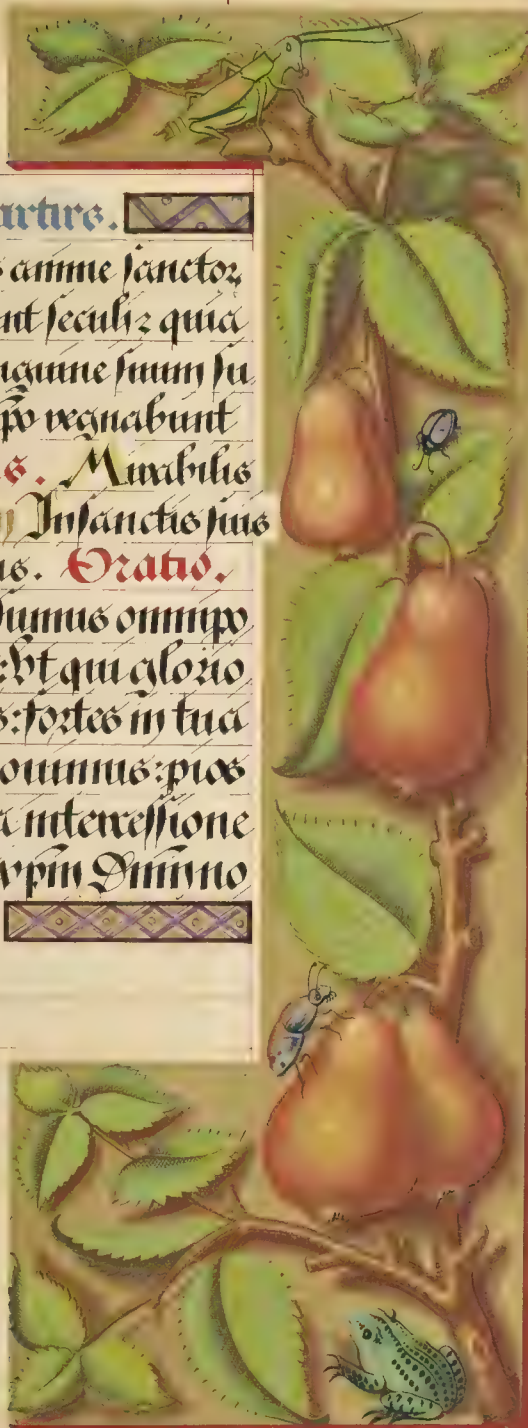 artirs.
s anime sanctoꝝ
nt seculis quia
nguine suum fu
xp̄o regnabunt
s. Mirabilis
Insanctis suis
us. Oratio.
sumus omnipo
: Vt qui glorio
s: fortes in tua
ouimus: pios
a intercessione
xp̄m Dnm̄ no